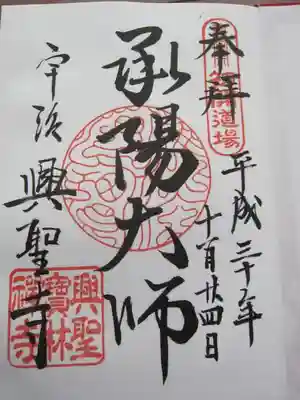 奉拝
道場
平成三十年
十一月廿四日
承陽大師
宇治 興聖寺
興聖
寶林
禪寺